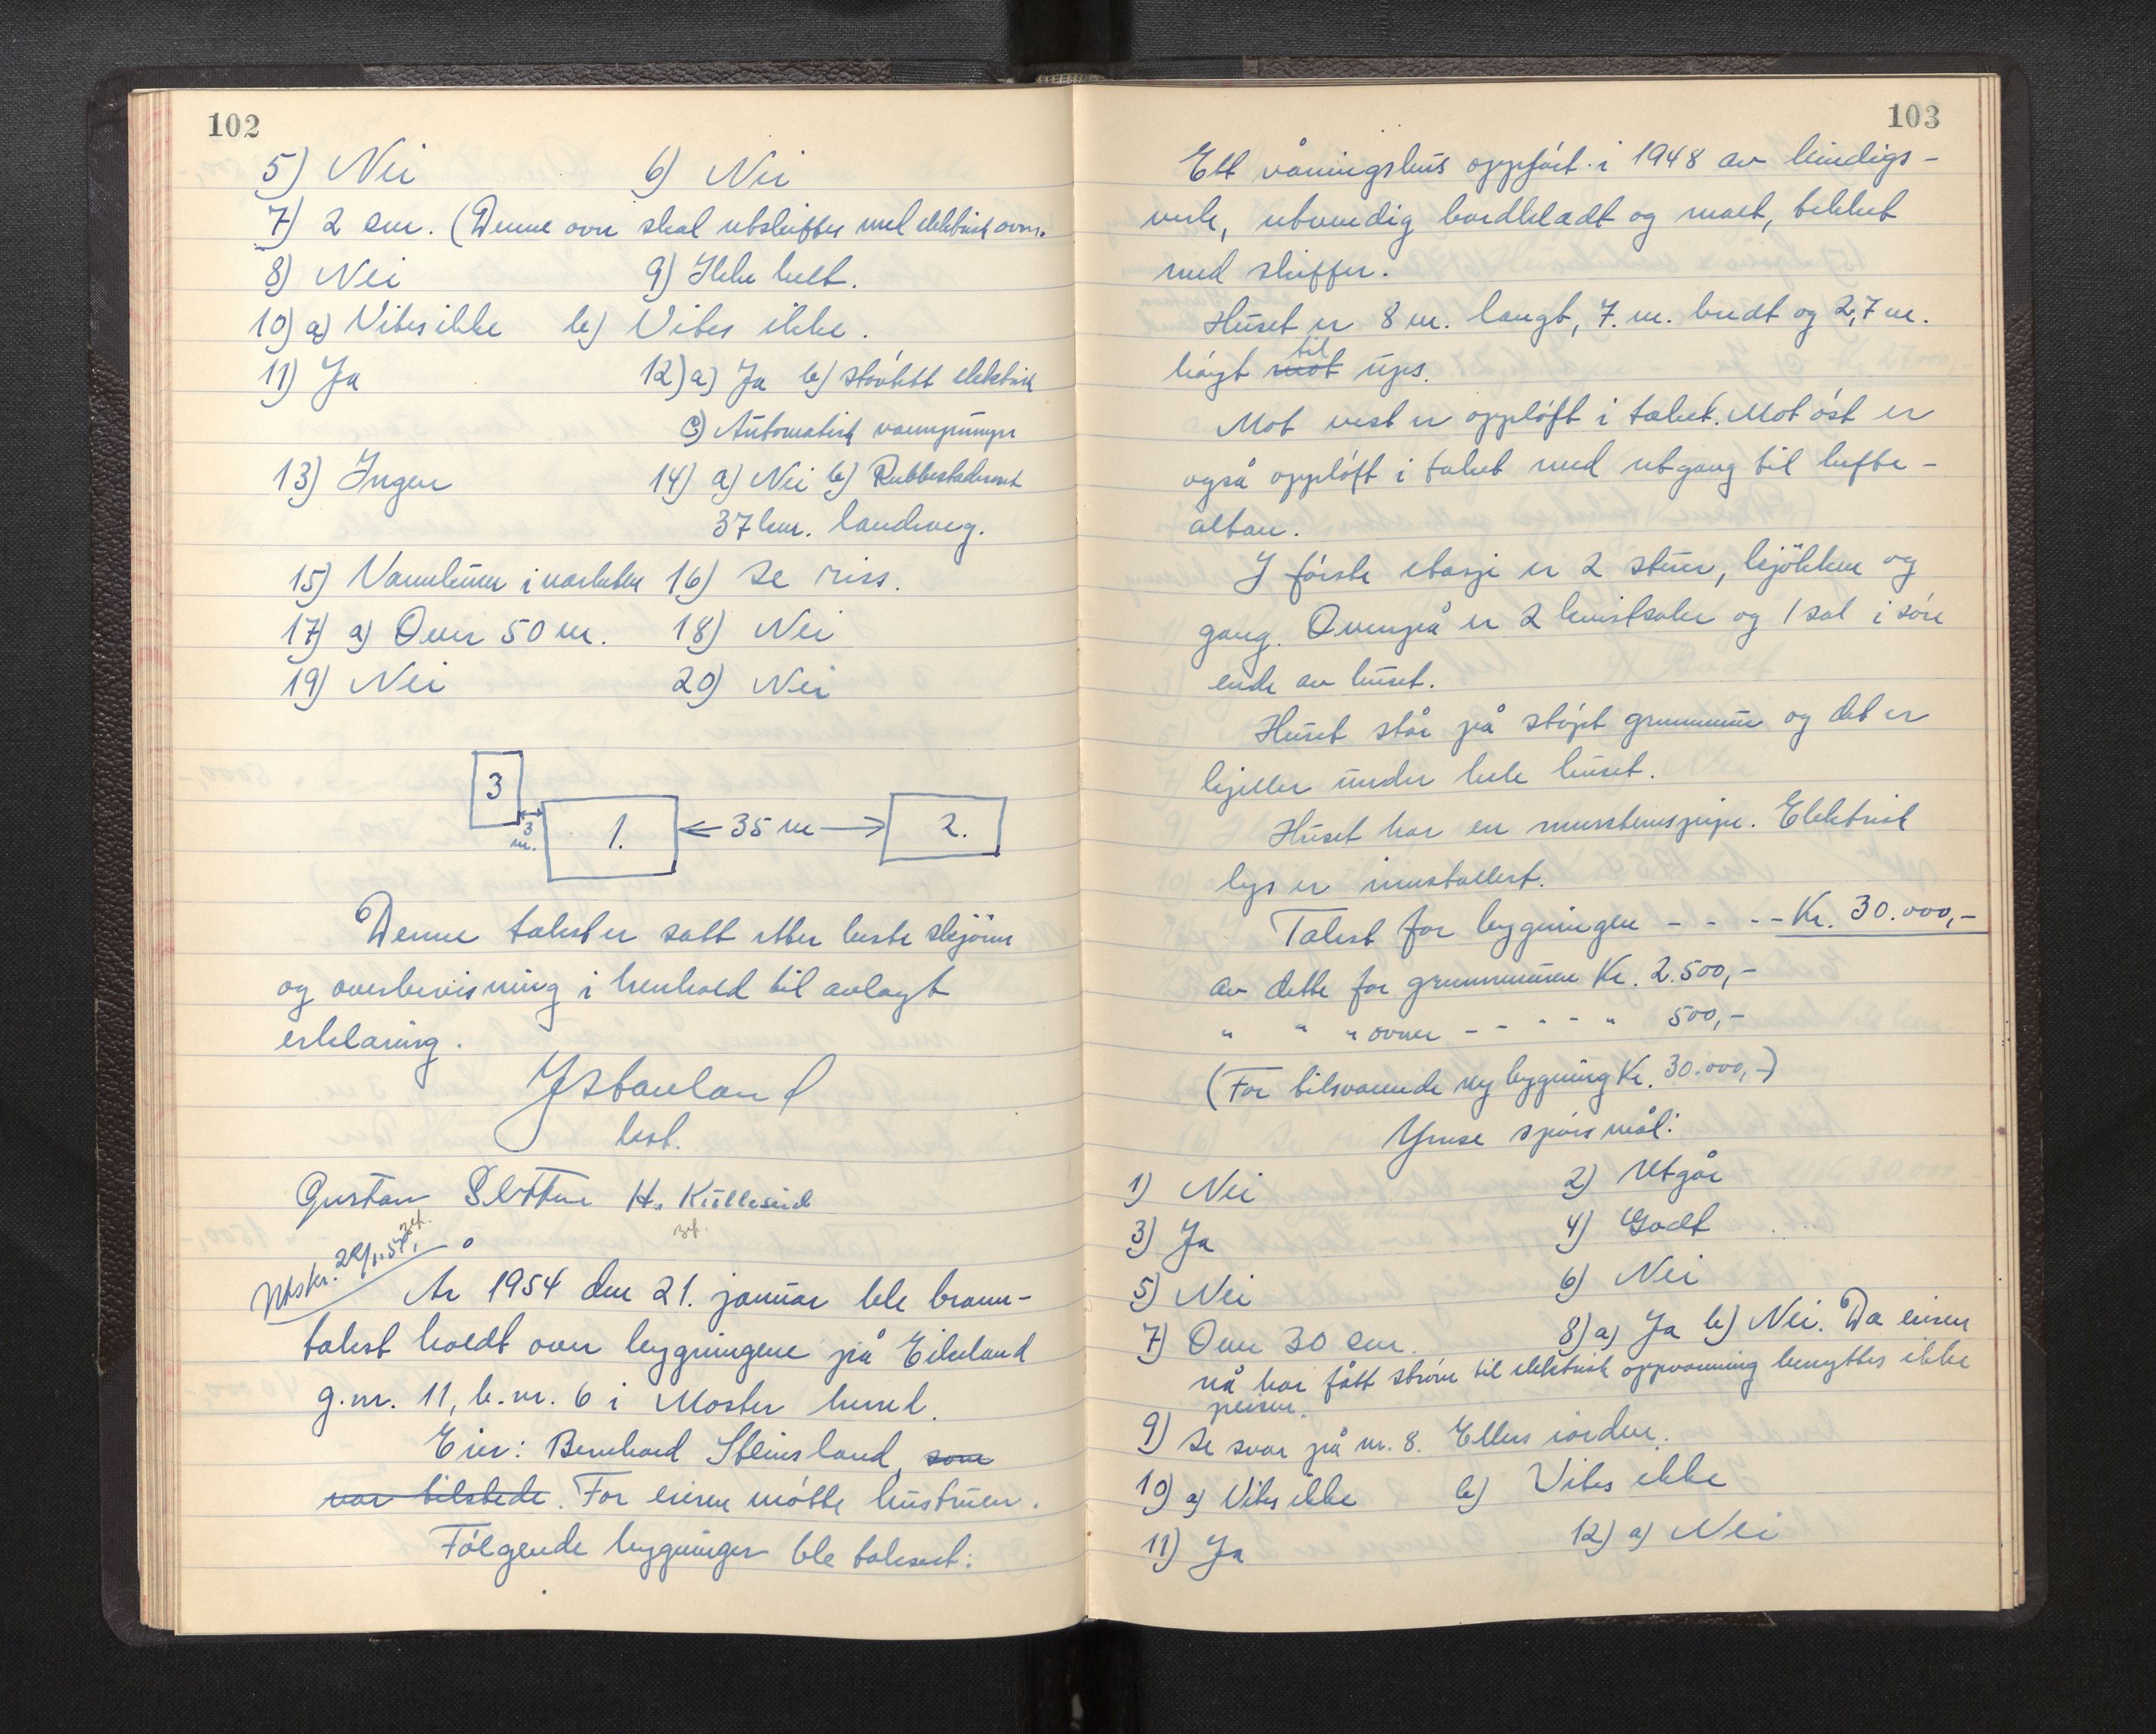 102
5) Nei 6) Nei
7) 2 cm. (Denne ovn skal utskiftes med elektrisk ovn.
8) Nei 9) Ikke helt.
10) a) Vites ikke b) Vites ikke.
11) Ja 12) a) Ja b) støvtett elektrisk
c) Automatisk vannpumpe
13) Ingen 14) a) Nei b) Rubbestadneset
37 km. landeveg.
15) Vannkum i nærheten 16) Se riss.
17) a) Over 50 m. 18) Nei
19) Nei 20) Nei
3
3 m.
1.
35 m
2.
Denne takst er satt etter beste skjønn
og overbevisning i henhold til avlagt
erklæring.
J Stauland
lest.
Gustav Sletten H. Kulleseid
Utskr. 22/1.-54.
År 1954 den 21. januar ble brann-
takst holdt over bygningene på Eikeland
g.nr. 11, b.nr. 6 i Moster herred.
Eier: Bernhard Steinsland, som
var tilstede. For eieren møtte hustruen.
Følgende bygninger ble taksert:
103
Ett våningshus oppført i 1948 av bindigs-
verk, utvendig bordkledt og malt, tekket
med skiffer.
Huset er 8 m. langt, 7. m. bredt og 2,7 m.
høgt mot til ups.
Mot vest er oppløft i taket. Mot øst er
også oppløft i taket med utgang til lufte-
altan.
I første etasje er 2 stuer, kjökken og
gang. Ovenpå er 2 kvistsaler og 1 sal i søre
ende av huset.
Huset står på støpt grunnmur og det er
kjeller under hele huset.
Huset har en murstenspipe. Elektrisk
lys er innstallert.
Takst for bygningen - - - - Kr. 30.000,-
av dette for grunnmuren Kr. 2.500,-
" " " ovner - - - - - " 500,-
(For tilsvarende ny bygning Kr. 30.000,-)
Ymse spörsmål:
1) Nei 2) Utgår
3) Ja 4) Godt
5) Nei 6) Nei
7) Over 30 cm. 8) a) Ja b) Nei. Da eieren
nå har fått strøm til elektrisk oppvarming benyttes ikke
peisen.
9) Se svar på nr. 8. Ellers iorden.
10) a) Vites ikke b) Vites ikke
11) Ja 12) a) Nei